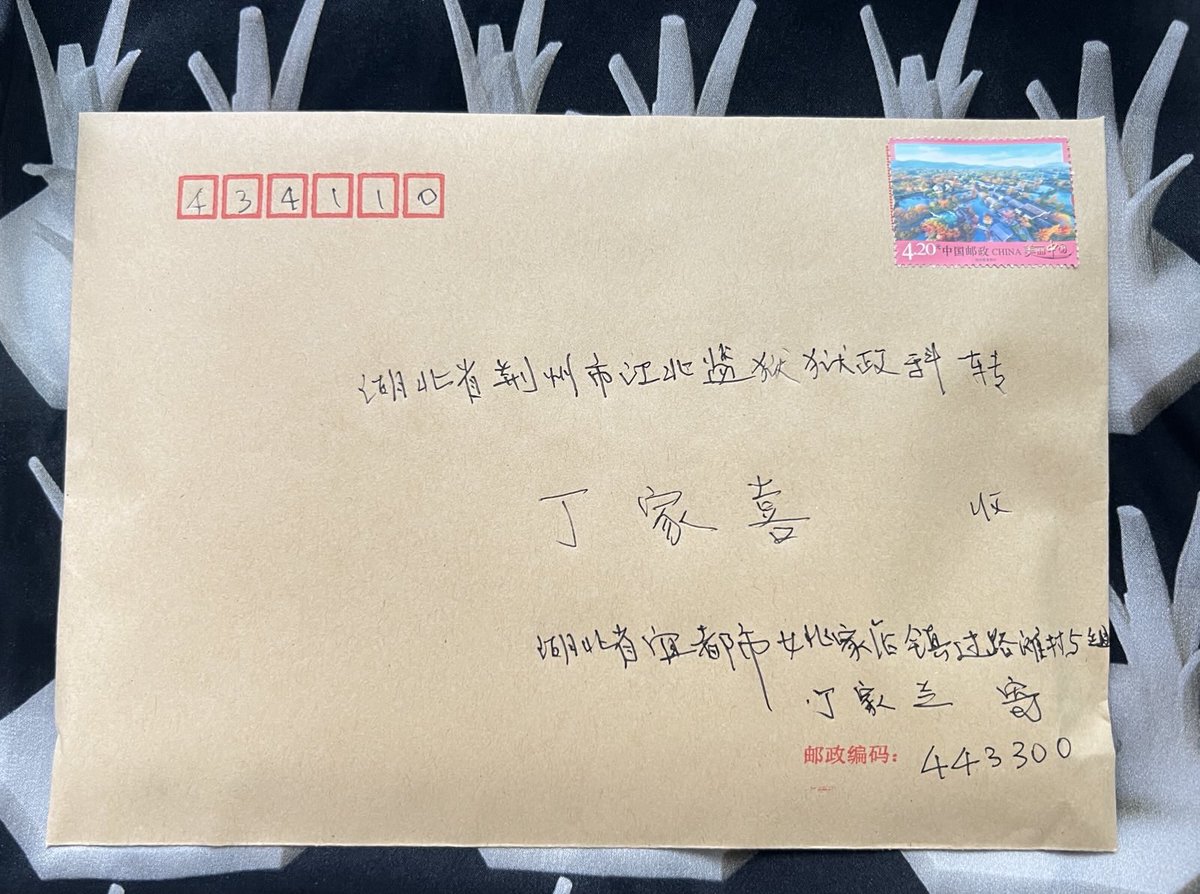 434110
4.20元 中国邮政 CHINA 美丽中国
湖北省荆州市江北监狱狱政科 转
丁家喜 收
湖北省宜都市姚家店镇过路滩村5组
丁家立 寄
邮政编码: 443300